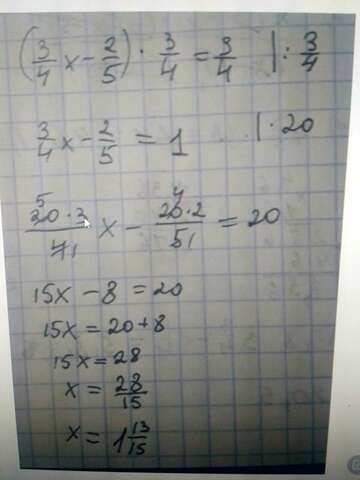 (3/4 x - 2/5) · 3/4 = 3/4 | : 3/4
3/4 x - 2/5 = 1 | · 20
20·3/4 x - 20·2/5 = 20
15x - 8 = 20
15x = 20 + 8
15x = 28
x = 28/15
x = 1 13/15